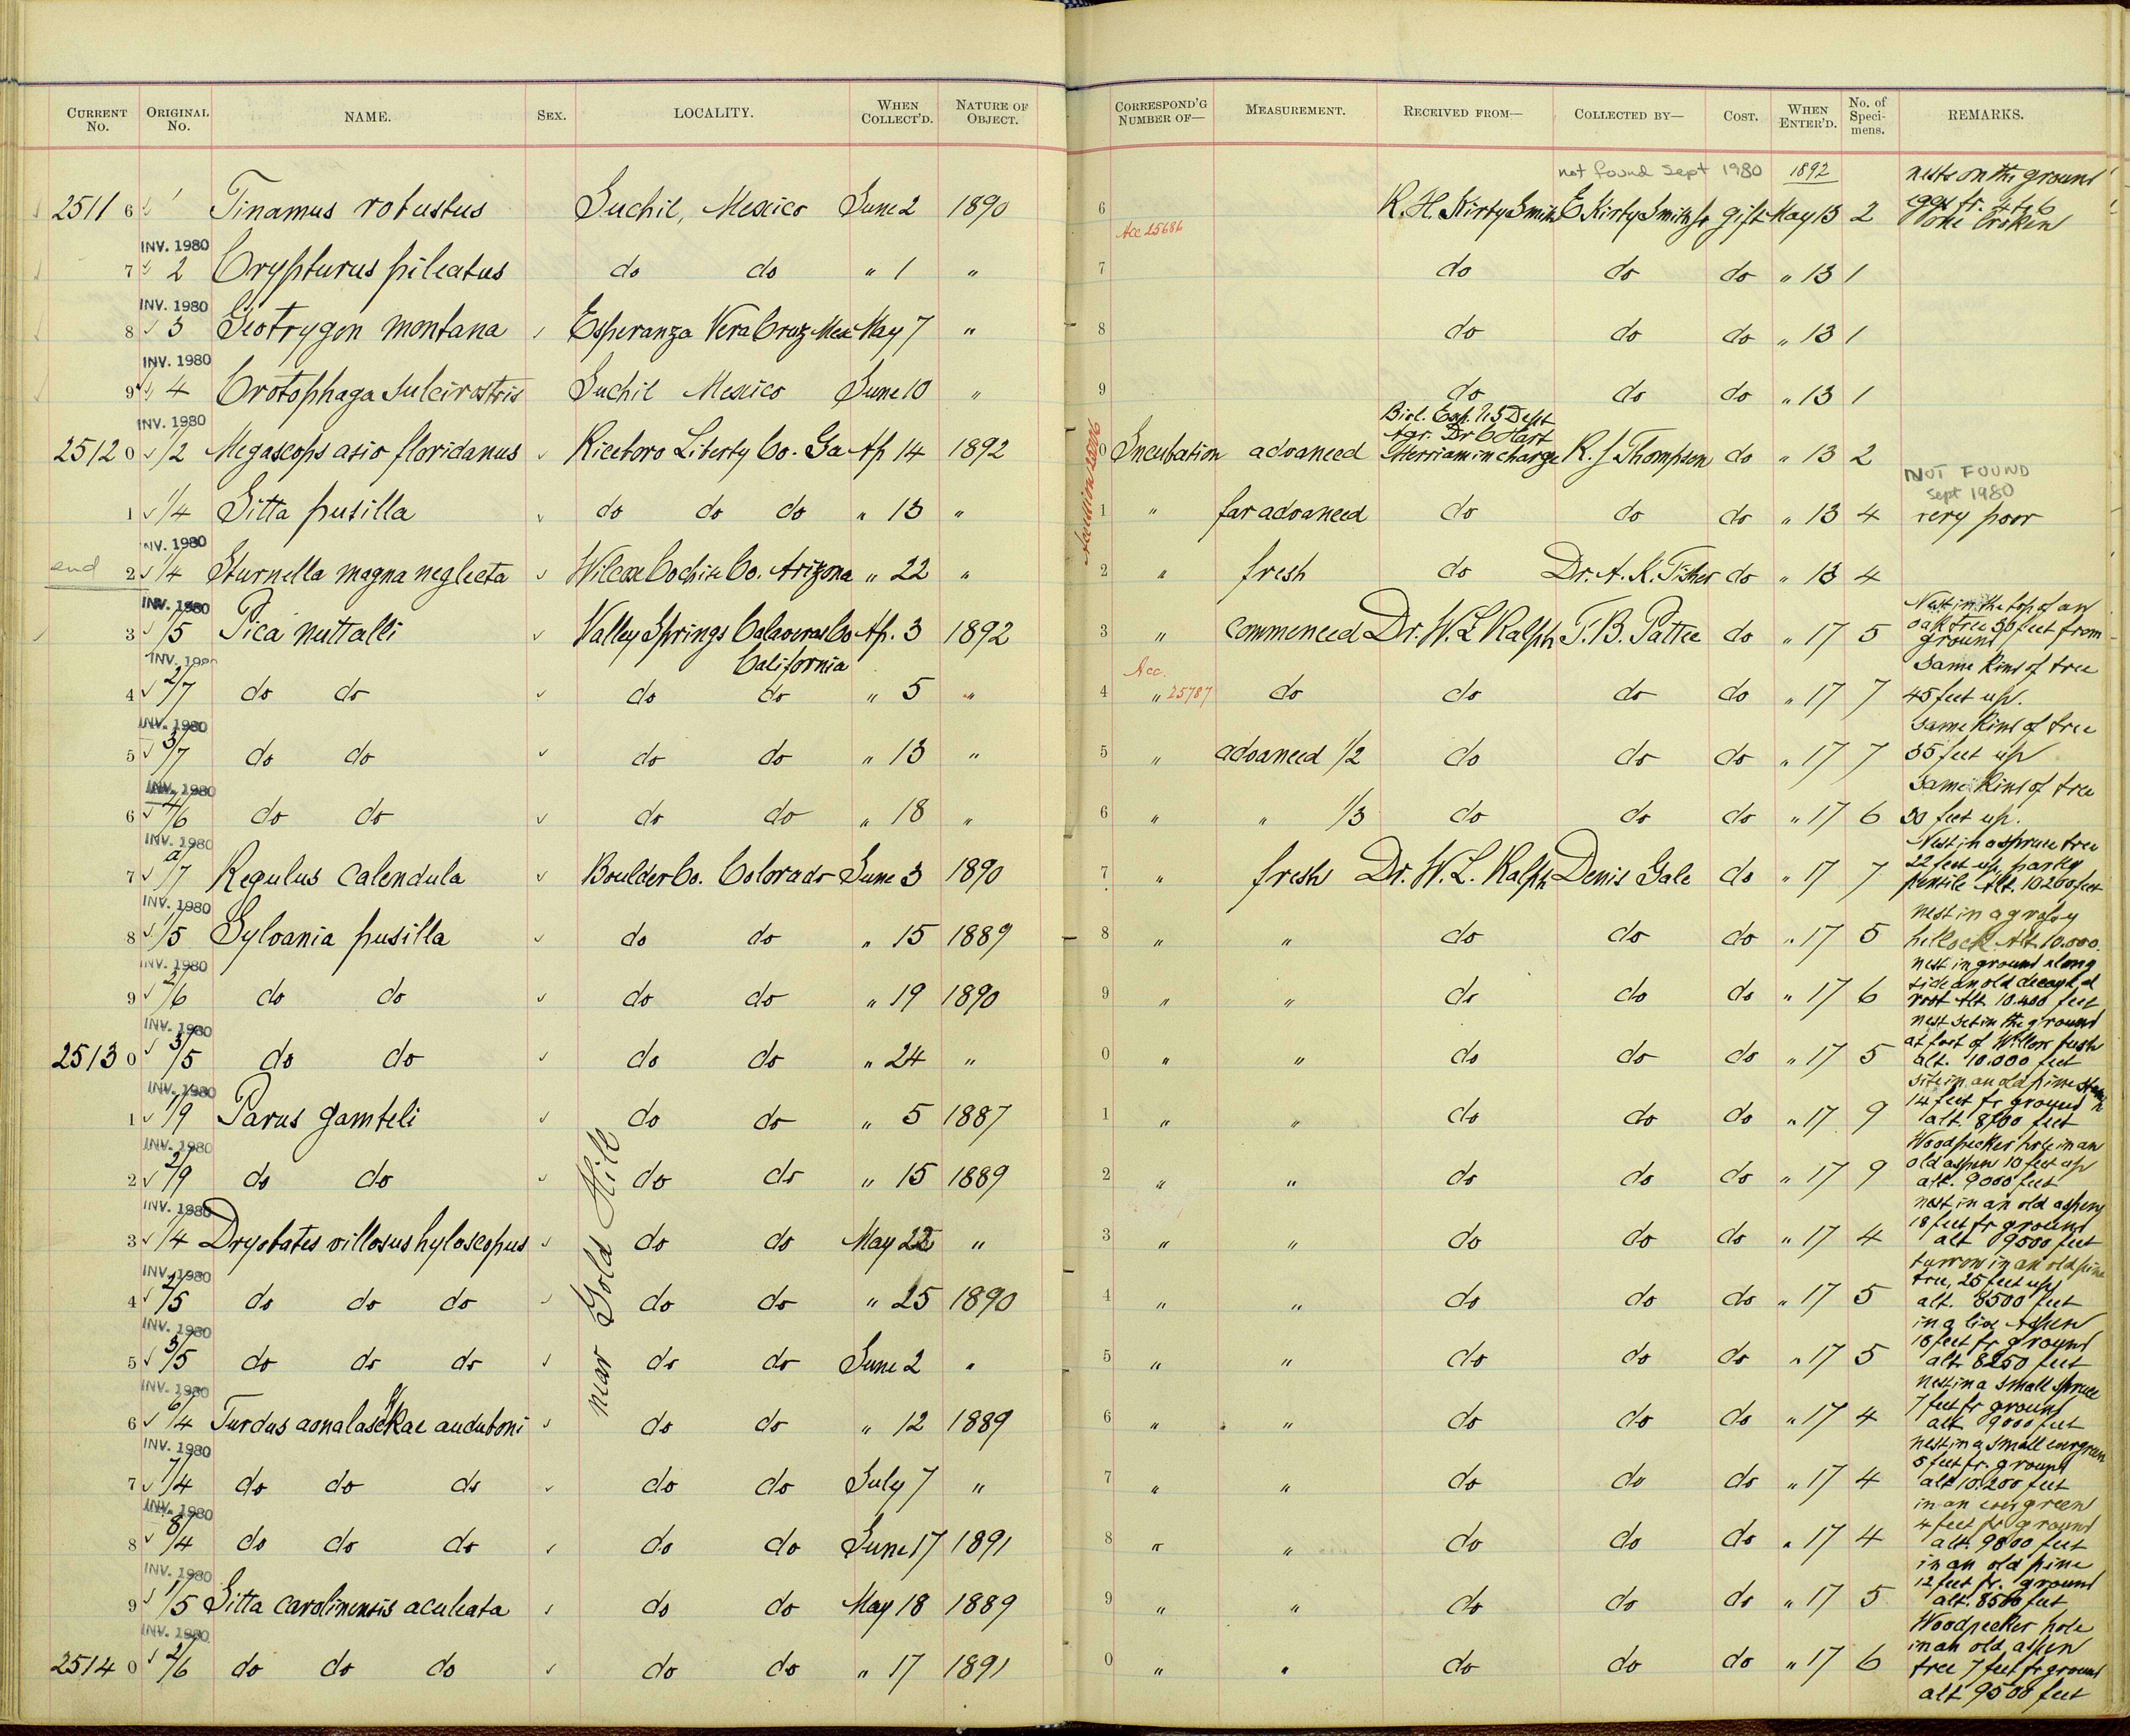 CURRENT No. ORIGINAL No. NAME. SEX. LOCALITY. WHEN COLLECT'D. NATURE OF OBJECT. CORRESPOND'G NUMBER OF— MEASUREMENT. RECEIVED FROM— COLLECTED BY— COST. WHEN ENTER'D. No. of Specimens. REMARKS.
not found Sept 1980 1892 nests on the ground
2511 6 1 Tinamus robustus Suchil, Mexico June 2 1890 6 R. H. Kirby Smith E Kirby Smith Jr gift May 13 2 eggs fr. 4 to 6
Acc 25686 one broken
INV. 1980
7 2 Crypturus pileatus do do " 1 " 7 do do do " 13 1
INV. 1980
8 3 Geotrygon montana Esperanza Vera Cruz Mex May 7 " 8 do do do " 13 1
INV. 1980
9 4 Crotophaga sulcirostris Suchil Mexico June 10 " 9 do do do " 13 1
INV. 1980 Biol. Exp. U S Dept
Agr. Dr C Hart
2512 0 1/2 Megascops asio floridanus Riceboro Liberty Co. Ga Ap 14 1892 0 Incubation advanced Merriam in charge R. J Thompson do " 13 2
Accession
NOT FOUND
Sept 1980
1 1/4 Sitta pusilla do do do " 13 " 1 " far advanced do do do " 13 4 very poor
INV. 1980
end 2 1/4 Sturnella magna neglecta Wilcox Cochise Co. Arizona " 22 " 2 " fresh do Dr. A. K. Fisher do " 13 4
INV. 1980 Nest in the top of an
3 1/5 Pica nuttalli Valley Springs Calaveras Co Ap. 3 1892 3 " commenced Dr. W. L Ralph F. B. Pattee do " 17 5 oak tree feet from
ground
INV. 1980 California Acc. same kind of tree
4 2/7 do do do do " 5 " 4 " 25787 do do do do " 17 7 45 feet up.
INV. 1980 same kind of tree
5 3/7 do do do do " 13 " 5 " advanced 1/2 do do do " 17 7 35 feet up
INV. 1980 same kind of tree
6 4/6 do do do do " 18 " 6 " " 1/3 do do do " 17 6 30 feet up.
INV. 1980 Nest in a spruce tree
7 a/7 Regulus calendula Boulder Co. Colorado June 3 1890 7 " fresh Dr. W. L. Ralph Denis Gale do " 17 7 22 feet up, partly
pensile Alt. 10200 feet
INV. 1980 nest in a grassy
8 1/5 Sylvania pusilla do do " 15 1889 8 " " do do do " 17 5 hillock Alt. 10.000.
INV. 1980 nest in ground along
side an old decayed
9 2/6 do do do do " 19 1890 9 " " do do do " 17 6 root Alt. 10.400 feet
INV. 1980 nest set in the ground
at foot of Willow bush
2513 0 3/5 do do do do " 24 " 0 " " do do do " 17 5 alt. 10.000 feet
INV. 1980 site in an old pine stem
14 feet fr ground
1 1/9 Parus gambeli do do " 5 1887 1 " " do do do " 17 9 alt. 8700 feet
INV. 1980 Woodpecker hole in an
old aspen 10 feet up
2 2/9 do do do do " 15 1889 2 " " do do do " 17 9 alt. 9000 feet
near Gold Hill
INV. 1980 nest in an old aspen
18 feet fr ground
3 1/4 Dryobates villosus hyloscopus do do May 22 " 3 " " do do do " 17 4 alt 9500 feet
INV. 1980 burrow in an old pine
tree, 25 feet up
4 2/5 do do do do do " 25 1890 4 " " do do do " 17 5 alt. 8500 feet
INV. 1980 in a live Aspen
18 feet fr ground
5 3/5 do do do do do June 2 " 5 " " do do do " 17 5 alt 8250 feet
INV. 1980 nest in a small spruce
7 feet fr ground
6 6/4 Turdus aonalaschkae auduboni do do " 12 1889 6 " " do do do " 17 4 alt 9000 feet
INV. 1980 nest in a small evergreen
5 feet fr. ground
7 7/4 do do do do do July 7 " 7 " " do do do " 17 4 alt 10.200 feet
INV. 1980 in an evergreen
4 feet fr ground
8 8/4 do do do do do June 17 1891 8 " " do do do " 17 4 alt. 9800 feet
INV. 1980 in an old pine
12 feet fr. ground
9 1/5 Sitta carolinensis aculeata do do May 18 1889 9 " " do do do " 17 5 alt. 8500 feet
INV. 1980 Woodpecker hole
in an old aspen
2514 0 2/6 do do do do do " 17 1891 0 " " do do do " 17 6 tree 7 feet fr ground
alt 9500 feet